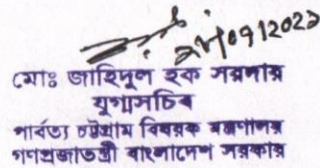 ২৮/০৭/২০২১
মোঃ জাহিদুল হক সরদার
যুগ্মসচিব
পার্বত্য চট্টগ্রাম বিষয়ক মন্ত্রণালয়
গণপ্রজাতন্ত্রী বাংলাদেশ সরকার